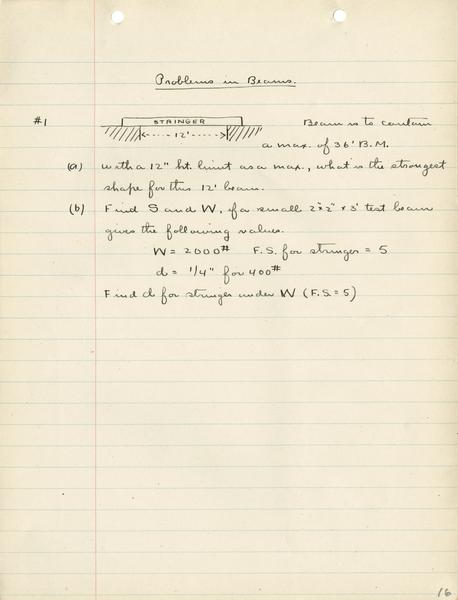 Problems in Beams.
#1 STRINGER Beam is to contain
12'
a max. of 36' B.M.
(a) with a 12" ht. limit as a max., what is the strongest
shape for this 12' beam.
(b) Find S and W, if a small 2"x2"x3' test beam
gives the following values.
W = 2000# F.S. for stringer = 5
d = 1/4" for 400#
Find d for stringer under W (F.S. = 5)
16